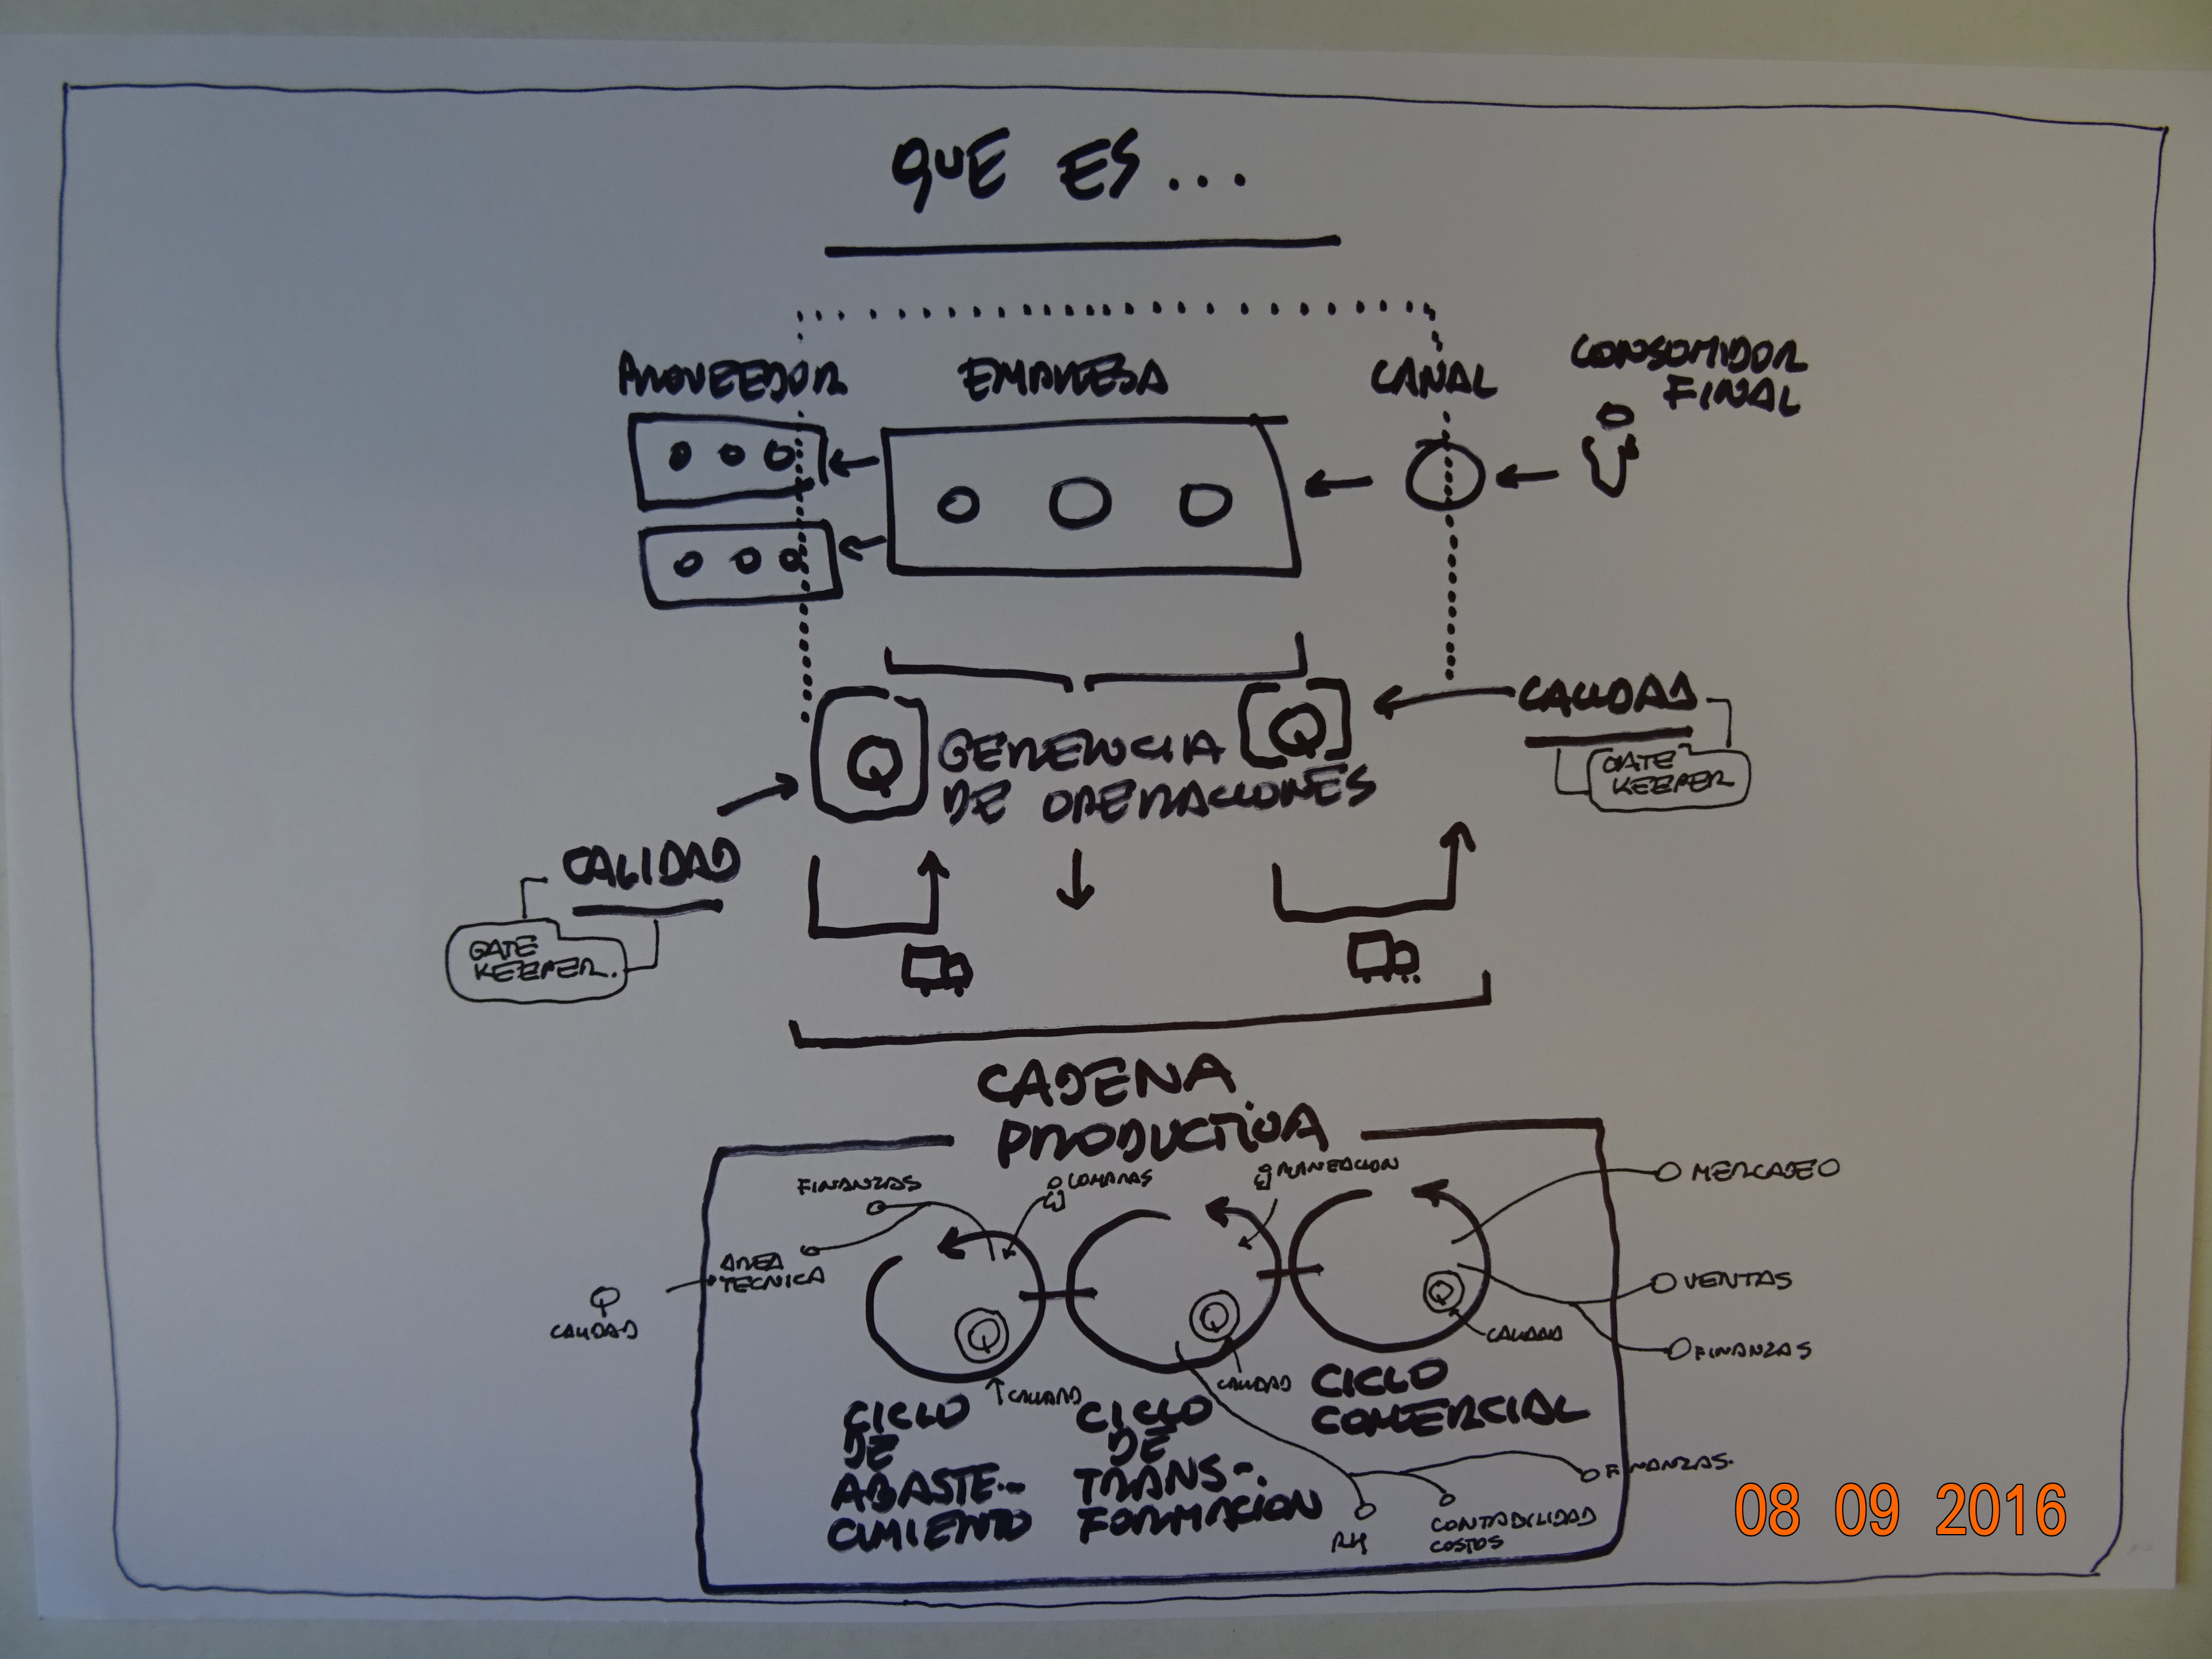 QUE ES...
PROVEEDOR
EMPRESA
CANAL
CONSUMIDOR
FINAL
Q
GERENCIA
DE OPERACIONES
Q
CALIDAD
GATE
KEEPER
CALIDAD
GATE
KEEPER.
CADENA
PRODUCTIVA
FINANZAS
COMPRAS
PLANEACION
MERCADEO
AREA
TECNICA
Q
CALIDAD
VENTAS
FINANZAS
Q
CALIDAD
Q
CALIDAD
Q
CALIDAD
CICLO
DE
ABASTE-
CIMIENTO
CICLO
DE
TRANS-
FORMACION
CICLO
COMERCIAL
FINANZAS.
RH
CONTABILIDAD
COSTOS
08 09 2016